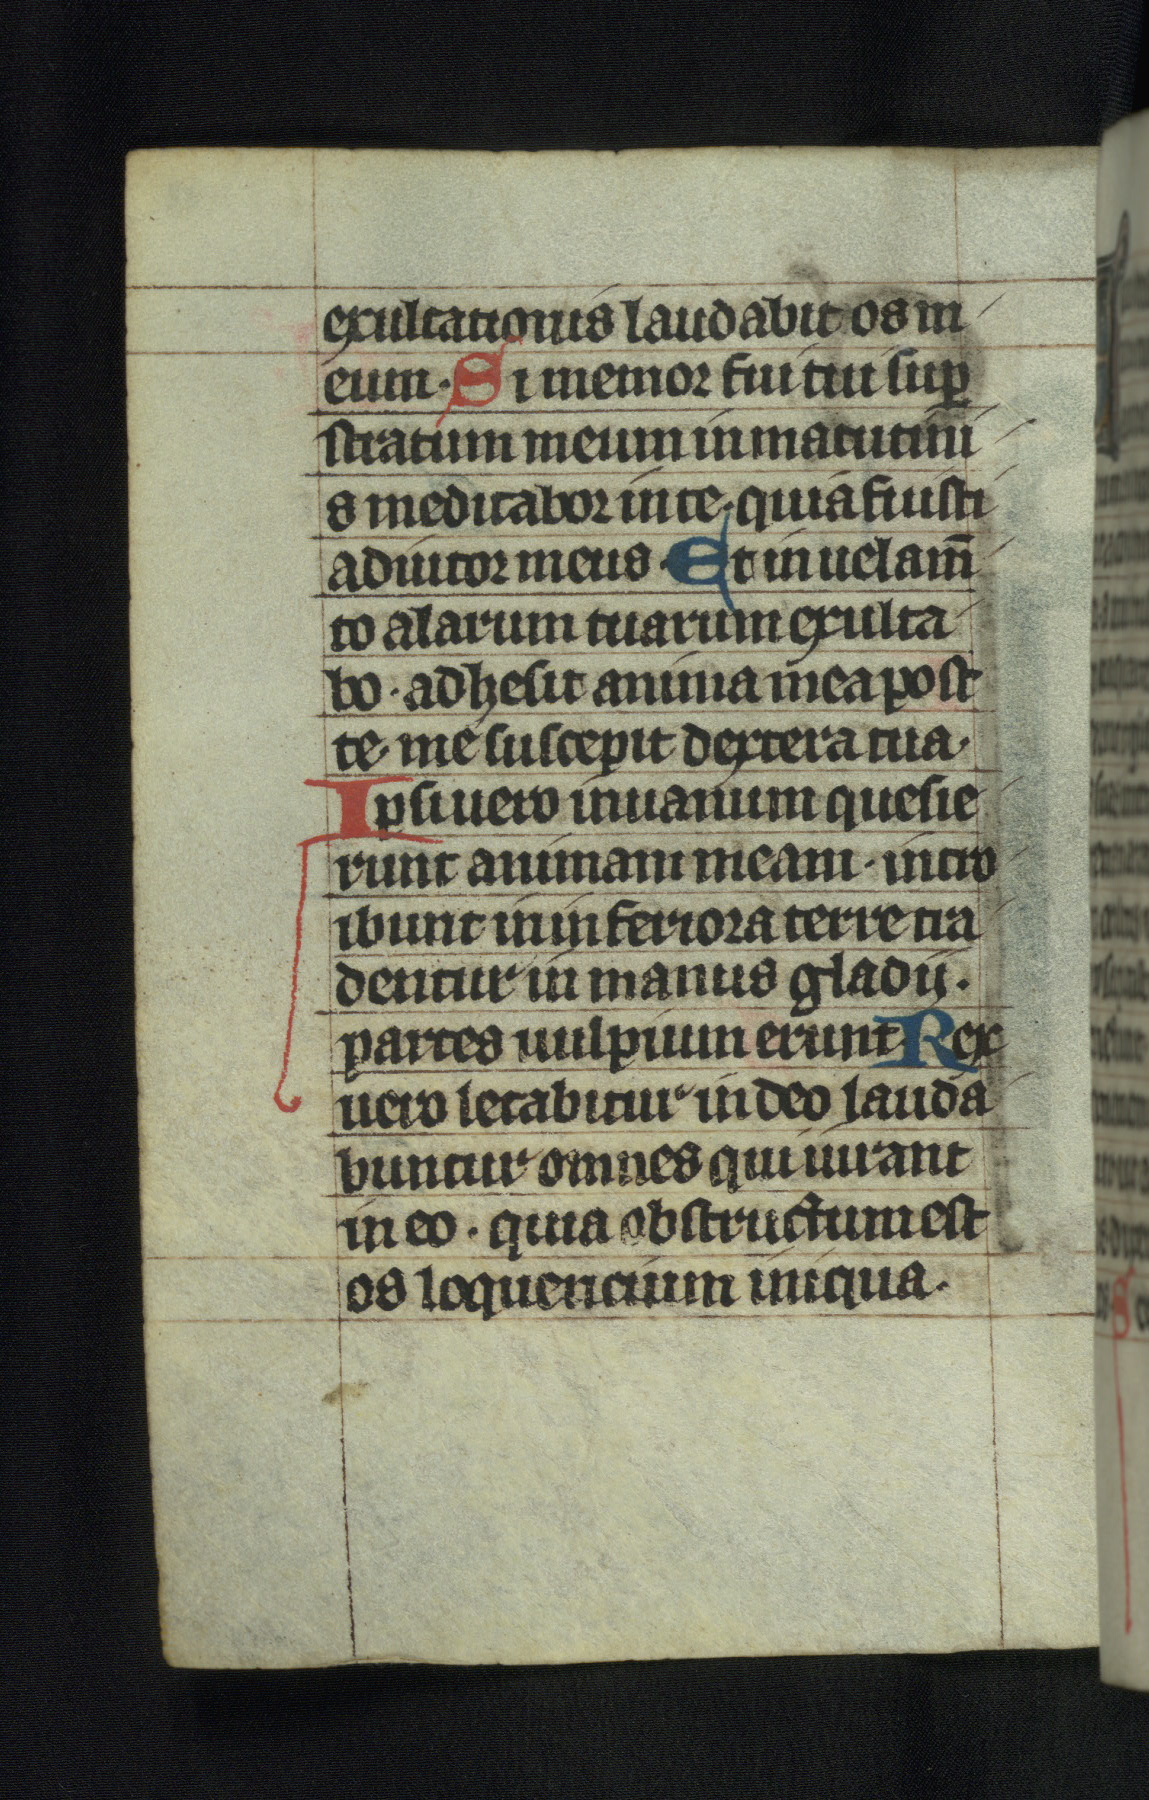 exultationis laudabit os m
eum · Si memor fui tui sup̱
stratum meum in matutini
s meditabor in te · quia fuisti
adiutor meus · Et in uelam̄
to alarum tuarum exulta
bo · adhesit anima mea post
te · me suscepit dextera tua ·
Ipsi uero in uanum quesie
runt animam meam · intro
ibunt in inferiora terre tra
dentur in manus gladij ·
partes uulpium erunt · Rex
uero letabitur in deo lauda
buntur omnes qui iurant
in eo · quia obstructum est
os loquencium iniqua ·